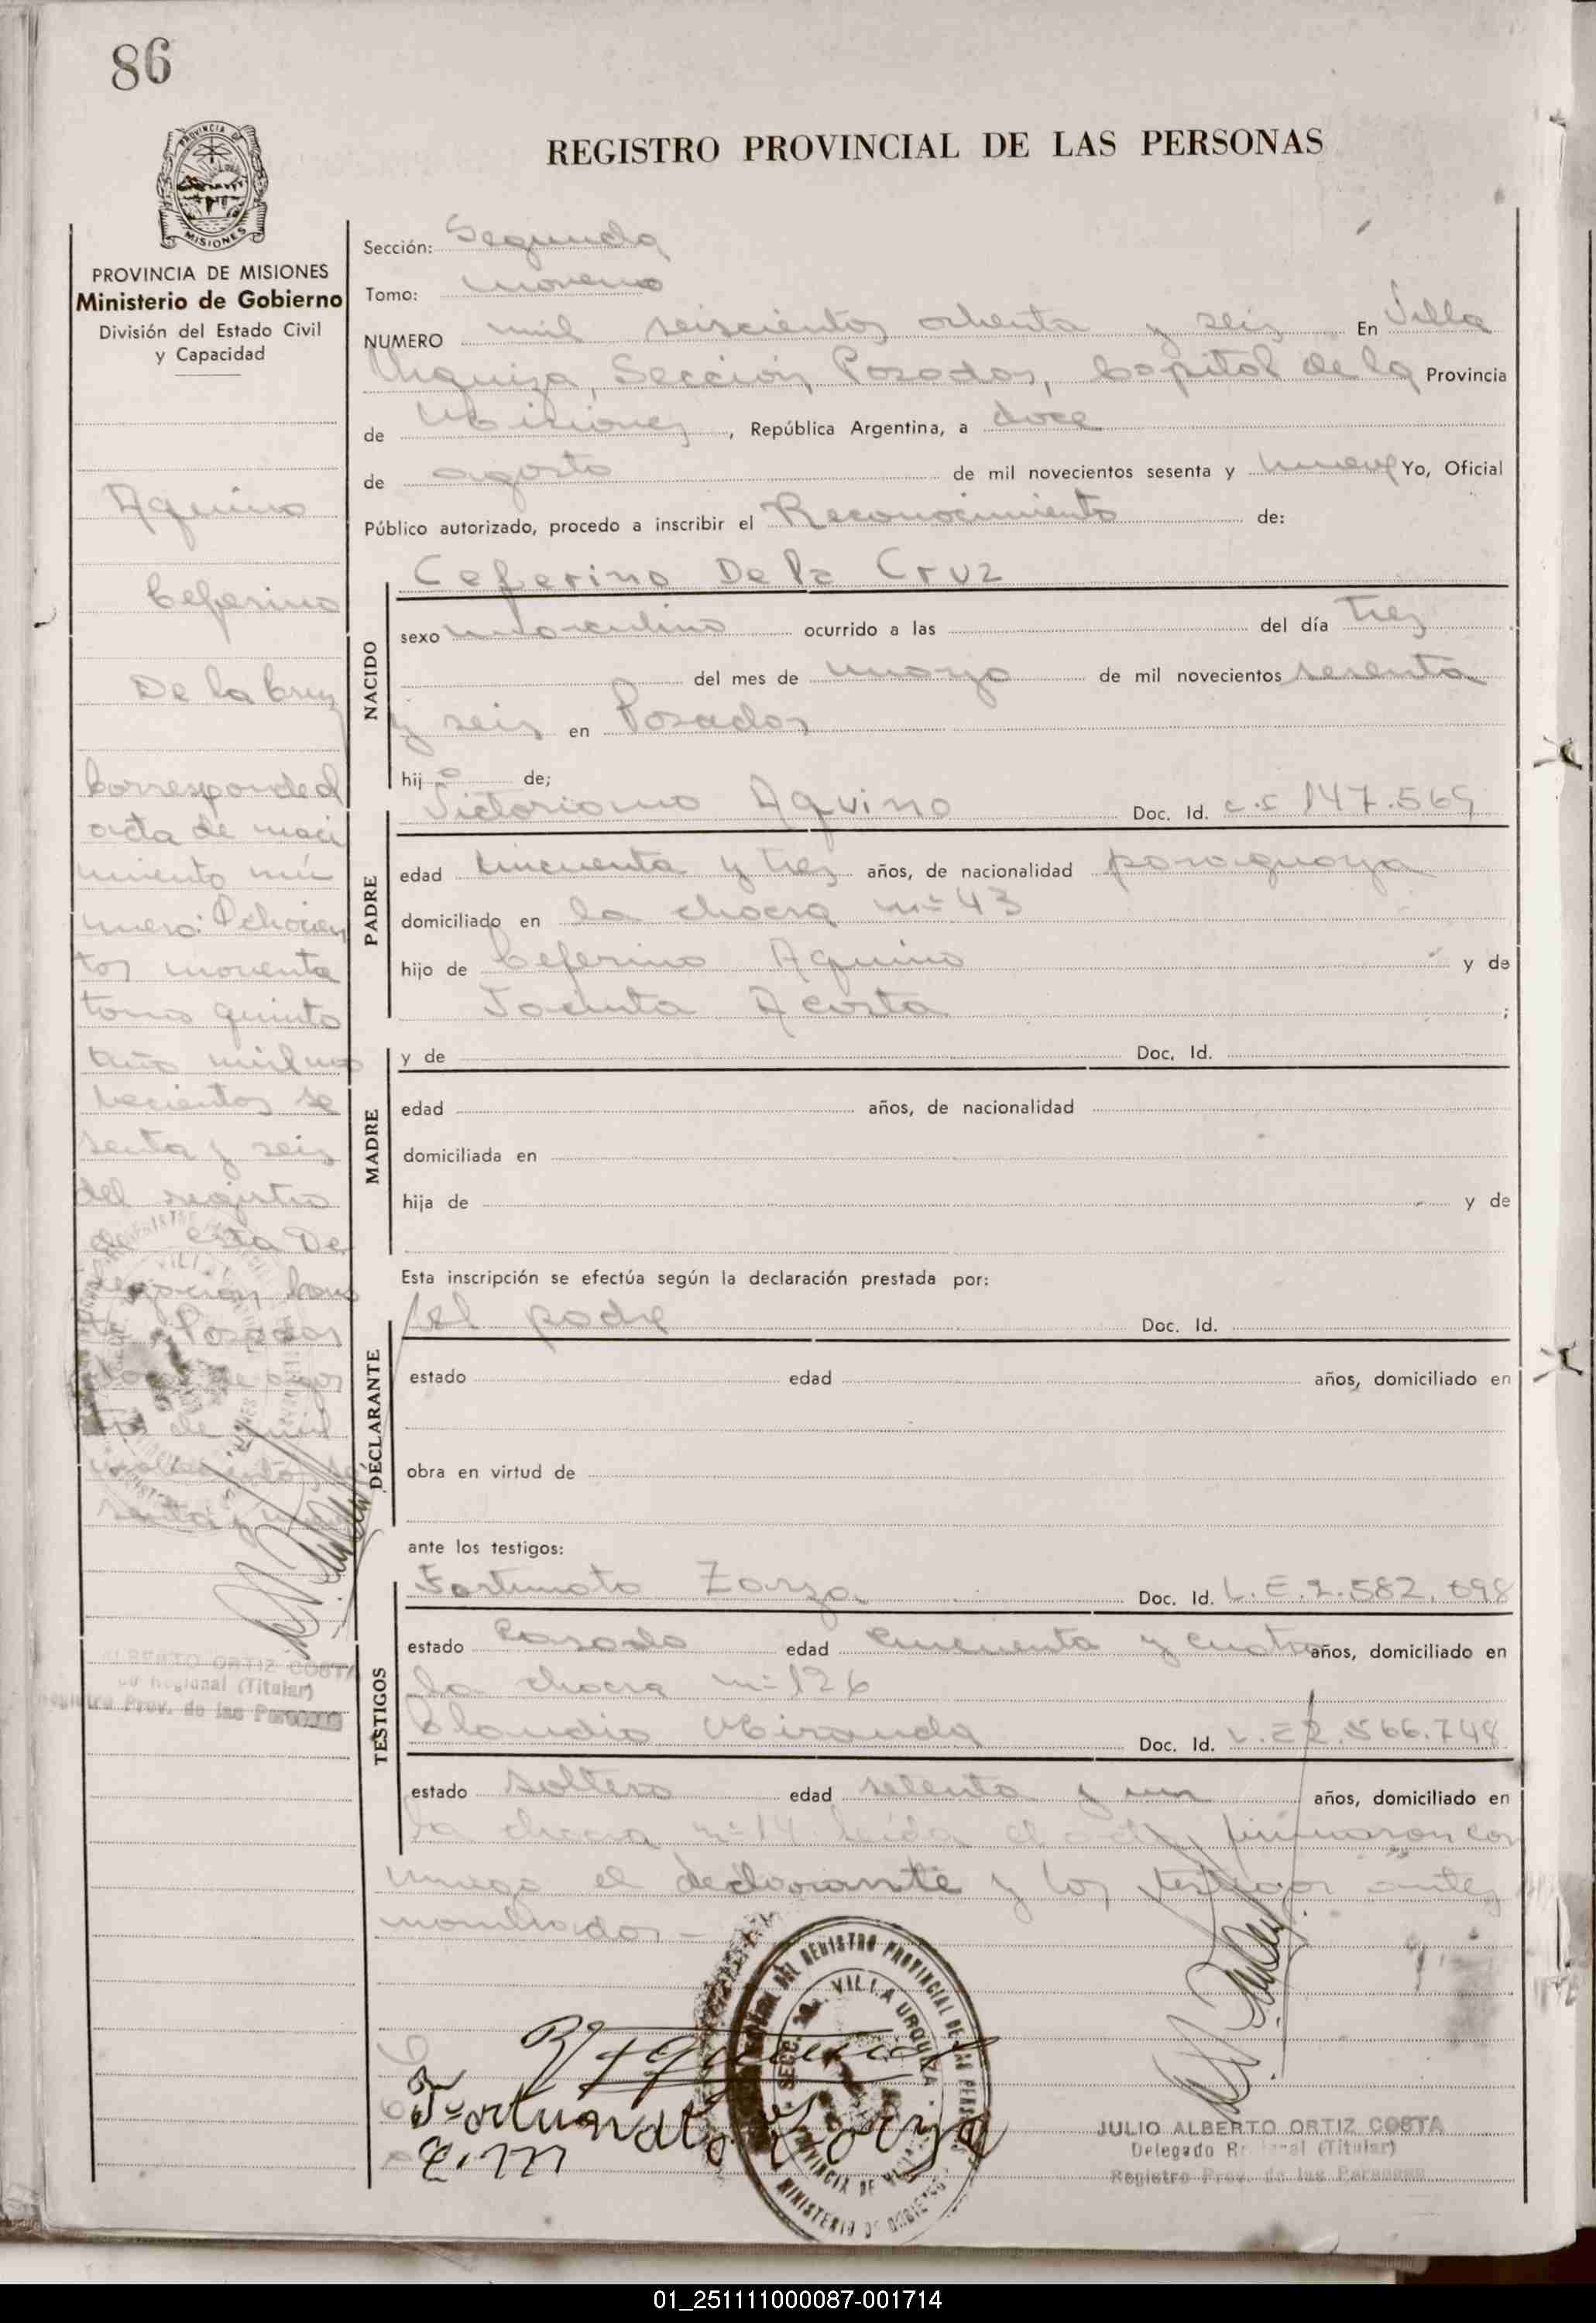 86
REGISTRO PROVINCIAL DE LAS PERSONAS
PROVINCIA DE MISIONES
Ministerio de Gobierno
División del Estado Civil
y Capacidad
Aquino
Ceferino
De la Cruz
Corresponde al
acta de naci
miento nú
mero: Ochocien
tos noventa
tomo quinto
año mil no
vecientos se
senta y seis
del registro
de esta De
Posadas
doce de agos
to de mil
ALBERTO ORTIZ COSTA
Regional (Titular)
Registro Prov. de las Personas
Sección: Segunda
Tomo: noveno
NUMERO mil seiscientos ochenta y seis En Villa
Urquiza, Sección, Posadas, Capital de la Provincia
de Misiones, República Argentina, a doce
de agosto de mil novecientos sesenta y nueve Yo, Oficial
Público autorizado, procedo a inscribir el Reconocimiento de:
NACIDO
Ceferino De la Cruz
sexo masculino ocurrido a las del día tres
del mes de mayo de mil novecientos sesenta
y seis en Posadas
hijo de;
PADRE
Victoriano Aquino Doc. Id. c.c 147.569
edad cincuenta y tres años, de nacionalidad paraguaya
domiciliado en la chacra nº 43
hijo de Ceferino Aquino y de
Jacinta Acosta ;
MADRE
y de Doc. Id.
edad años, de nacionalidad
domiciliada en
hija de y de
Esta inscripción se efectúa según la declaración prestada por:
DECLARANTE
el padre Doc. Id.
estado edad años, domiciliado en
obra en virtud de
ante los testigos:
TESTIGOS
Fortunato Zarza Doc. Id. L.E.2.582.698
estado Casado edad cincuenta y cuatro años, domiciliado en
la chacra nº 126
Claudio Miranda Doc. Id. L.E 2.566.748
estado soltero edad setenta y un años, domiciliado en
la chacra nº 14 leída el acta, firmaron con
migo el declarante y los testigos antes
nombrados.-
Fortunato Zarza
C. M
JULIO ALBERTO ORTIZ COSTA
Delegado Regional (Titular)
Registro Prov. de las Personas
01_251111000087-001714